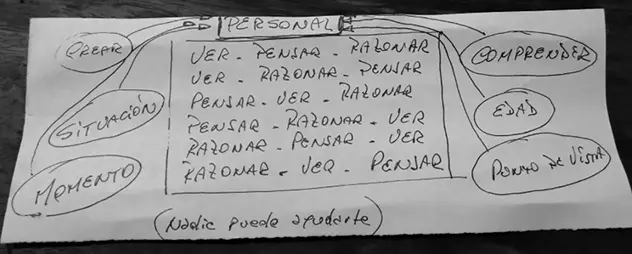 PERSONAL
CREAR
SITUACIÓN
MOMENTO
VER - PENSAR - RAZONAR
VER - RAZONAR - PENSAR
PENSAR - VER - RAZONAR
PENSAR - RAZONAR - VER
RAZONAR - PENSAR - VER
RAZONAR - VER - PENSAR
COMPRENDER
EDAD
PUNTO DE VISTA
(Nadie puede ayudarte)